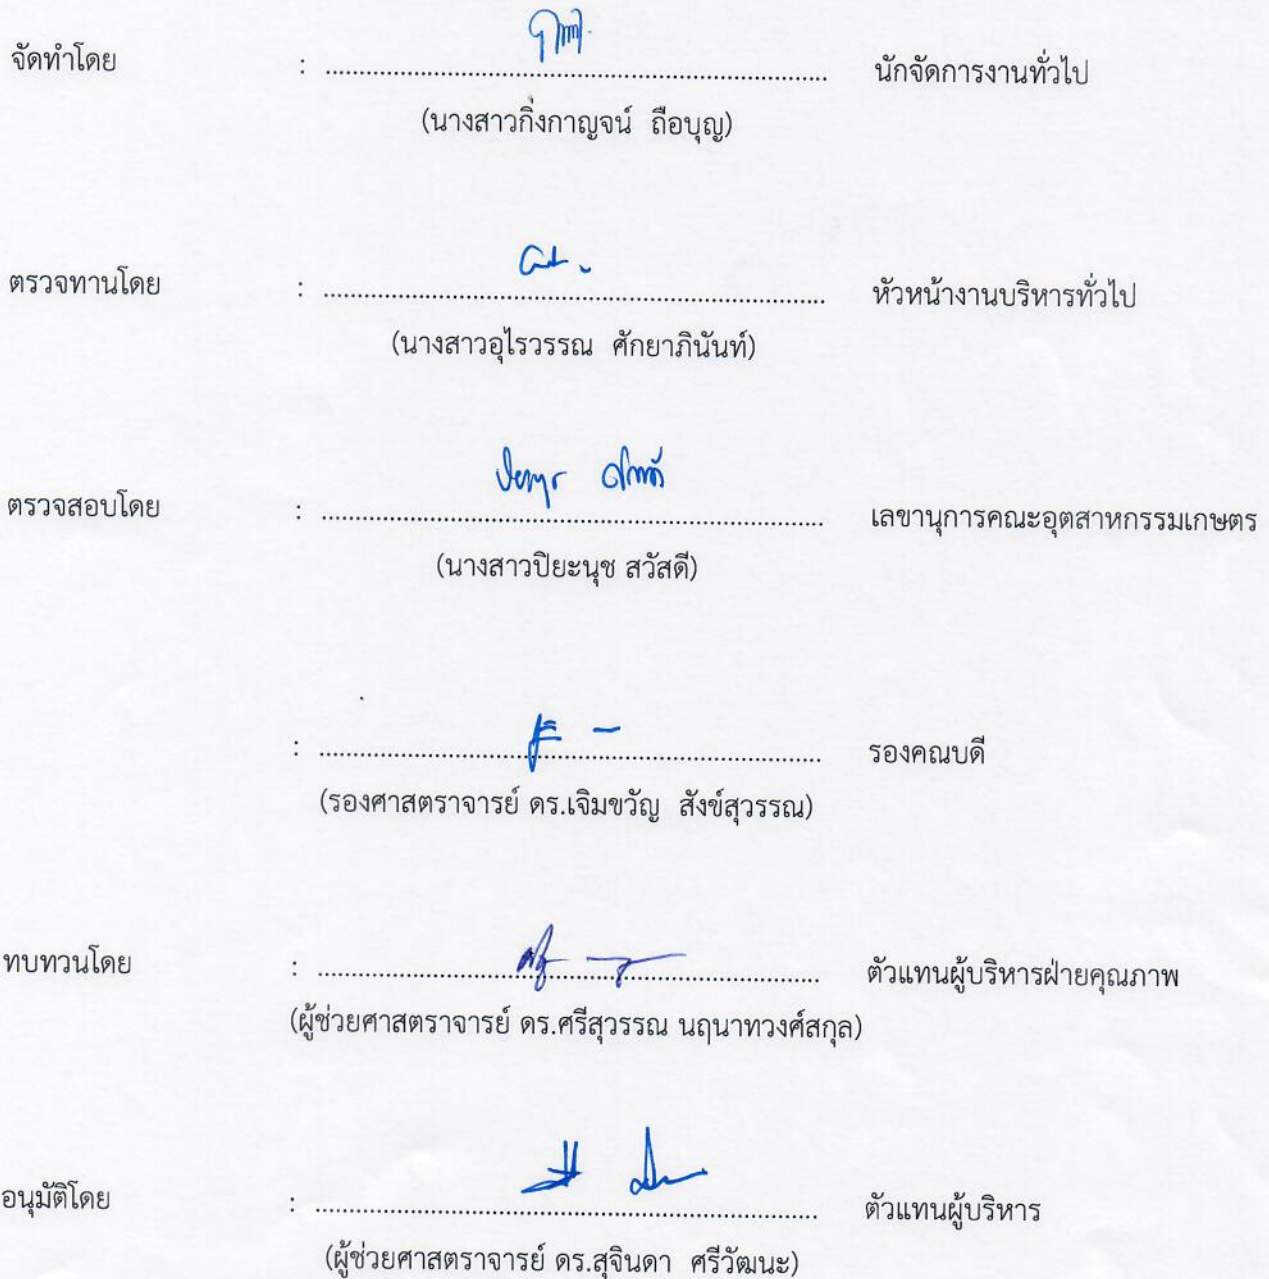 จัดทำโดย : ........................................ นักจัดการงานทั่วไป
(นางสาวกิ่งกาญจน์ ถือบุญ)
ตรวจทานโดย : ........................................ หัวหน้างานบริหารทั่วไป
(นางสาวอุไรวรรณ ศักยาภินันท์)
ตรวจสอบโดย : ........................................ เลขานุการคณะอุตสาหกรรมเกษตร
(นางสาวปิยะนุช สวัสดี)
: ........................................ รองคณบดี
(รองศาสตราจารย์ ดร.เจิมขวัญ สังข์สุวรรณ)
ทบทวนโดย : ........................................ ตัวแทนผู้บริหารฝ่ายคุณภาพ
(ผู้ช่วยศาสตราจารย์ ดร.ศรีสุวรรณ นฤนาทวงศ์สกุล)
อนุมัติโดย : ........................................ ตัวแทนผู้บริหาร
(ผู้ช่วยศาสตราจารย์ ดร.สุจินดา ศรีวัฒนะ)